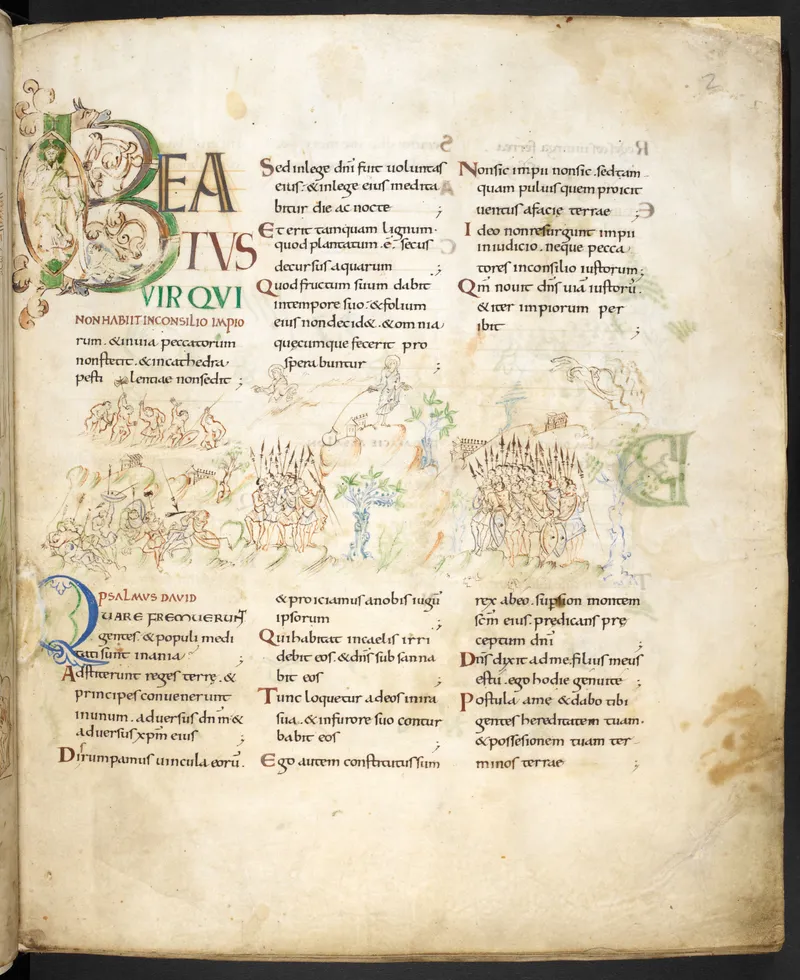 2
BEA
TVS
VIR QVI
NON HABIIT IN CONSILIO IMPIO
rum. & inuia peccatorum
non stetit. & incathedra
pesti lentiae non sedit ;
Sed inlege dn̄i fuit uoluntas
eius. & inlege eius medita
bitur die ac nocte ;
Et erit tamquam lignum.
quod plantatum .ē. secus
decursus aquarum ;
Quod fructum suum dabit
intempore suo. & folium
eius non decid&. & omnia
quecumque fecerit pro
sperabuntur ;
Non sic impii non sic. sed tam
quam puluis quem proicit
uentus afacie terrae ;
Ideo non resurgunt impii
in iudicio. neque pecca
tores in consilio iustorum ;
Qm̄ nouit dn̄s uiā iustorū.
& iter impiorum per
ibit ;
PSALMVS DAVID
QUARE FREMUERUNT
gentes. & populi medi
tati sunt inania ;
Adstiterunt reges terrę. &
principes conuenerunt
inunum. aduersus dn̄m &
aduersus xp̄m eius ;
Dirumpamus uincula eorū.
& proiciamus anobis iugū
ipsorum ;
Qui habitat in caelis irri
debit eos. & dn̄s subsanna
bit eos ;
Tunc loquetur ad eos in ira
sua. & in furore suo contur
babit eos ;
Ego autem constitutus sum
rex abeo. super sion montem
sc̄m eius. predicans prę
ceptum dn̄i ;
Dn̄s dixit ad me. filius meus
es tu. ego hodie genui te ;
Postula ame & dabo tibi
gentes hereditatem tuam.
& possesionem tuam ter
minos terrae ;